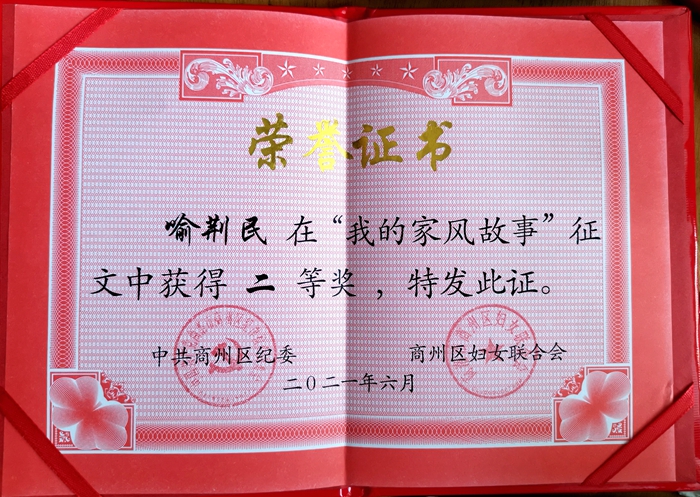 荣誉证书
喻荆民 在“我的家风故事”征
文中获得 二 等奖 ，特发此证。
中共商州区纪委 商州区妇女联合会
二〇二一年六月